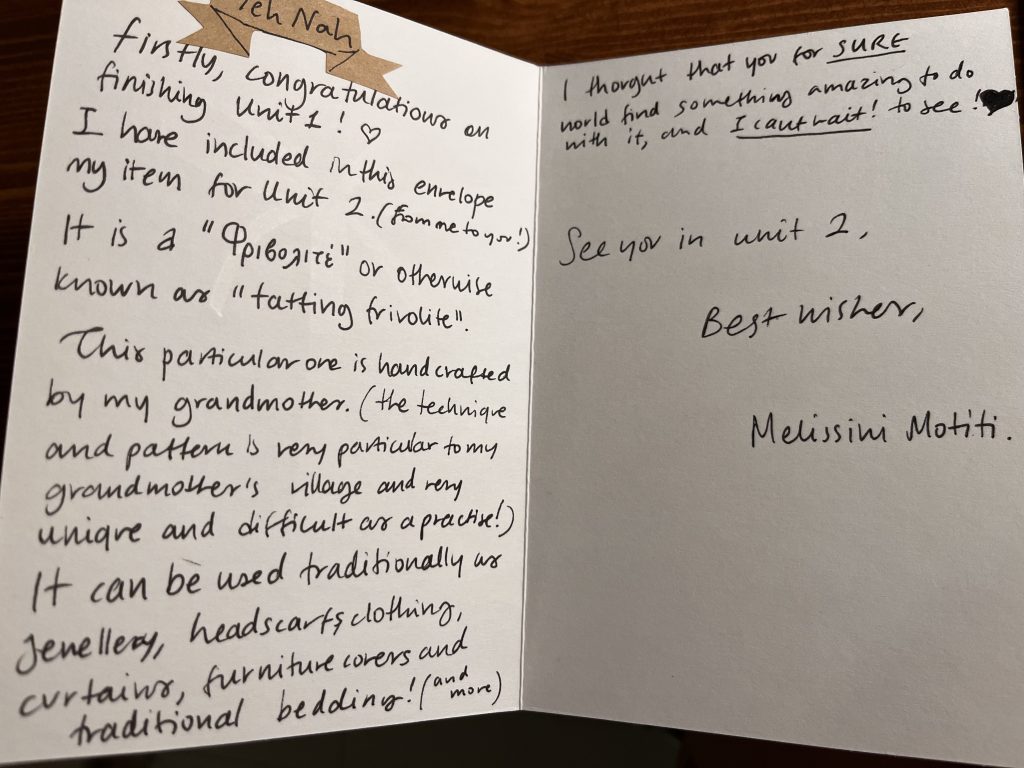 Yeh Nah
firstly, congratulations on
finishing Unit 1! ♡
I have included in this envelope
my item for Unit 2. (from me to you!)
It is a "Φριβολιτέ" or otherwise
known as "tatting frivolite".
This particular one is handcrafted
by my grandmother. (the technique
and pattern is very particular to my
grandmother's village and very
unique and difficult as a practise!)
It can be used traditionally as
jewellery, headscarfs, clothing,
curtains, furniture covers and
traditional bedding! (and more)
I thought that you for SURE
would find something amazing to do
with it, and I cant wait! to see! ♥
See you in unit 2,
Best wishes,
Melissini Motiti.